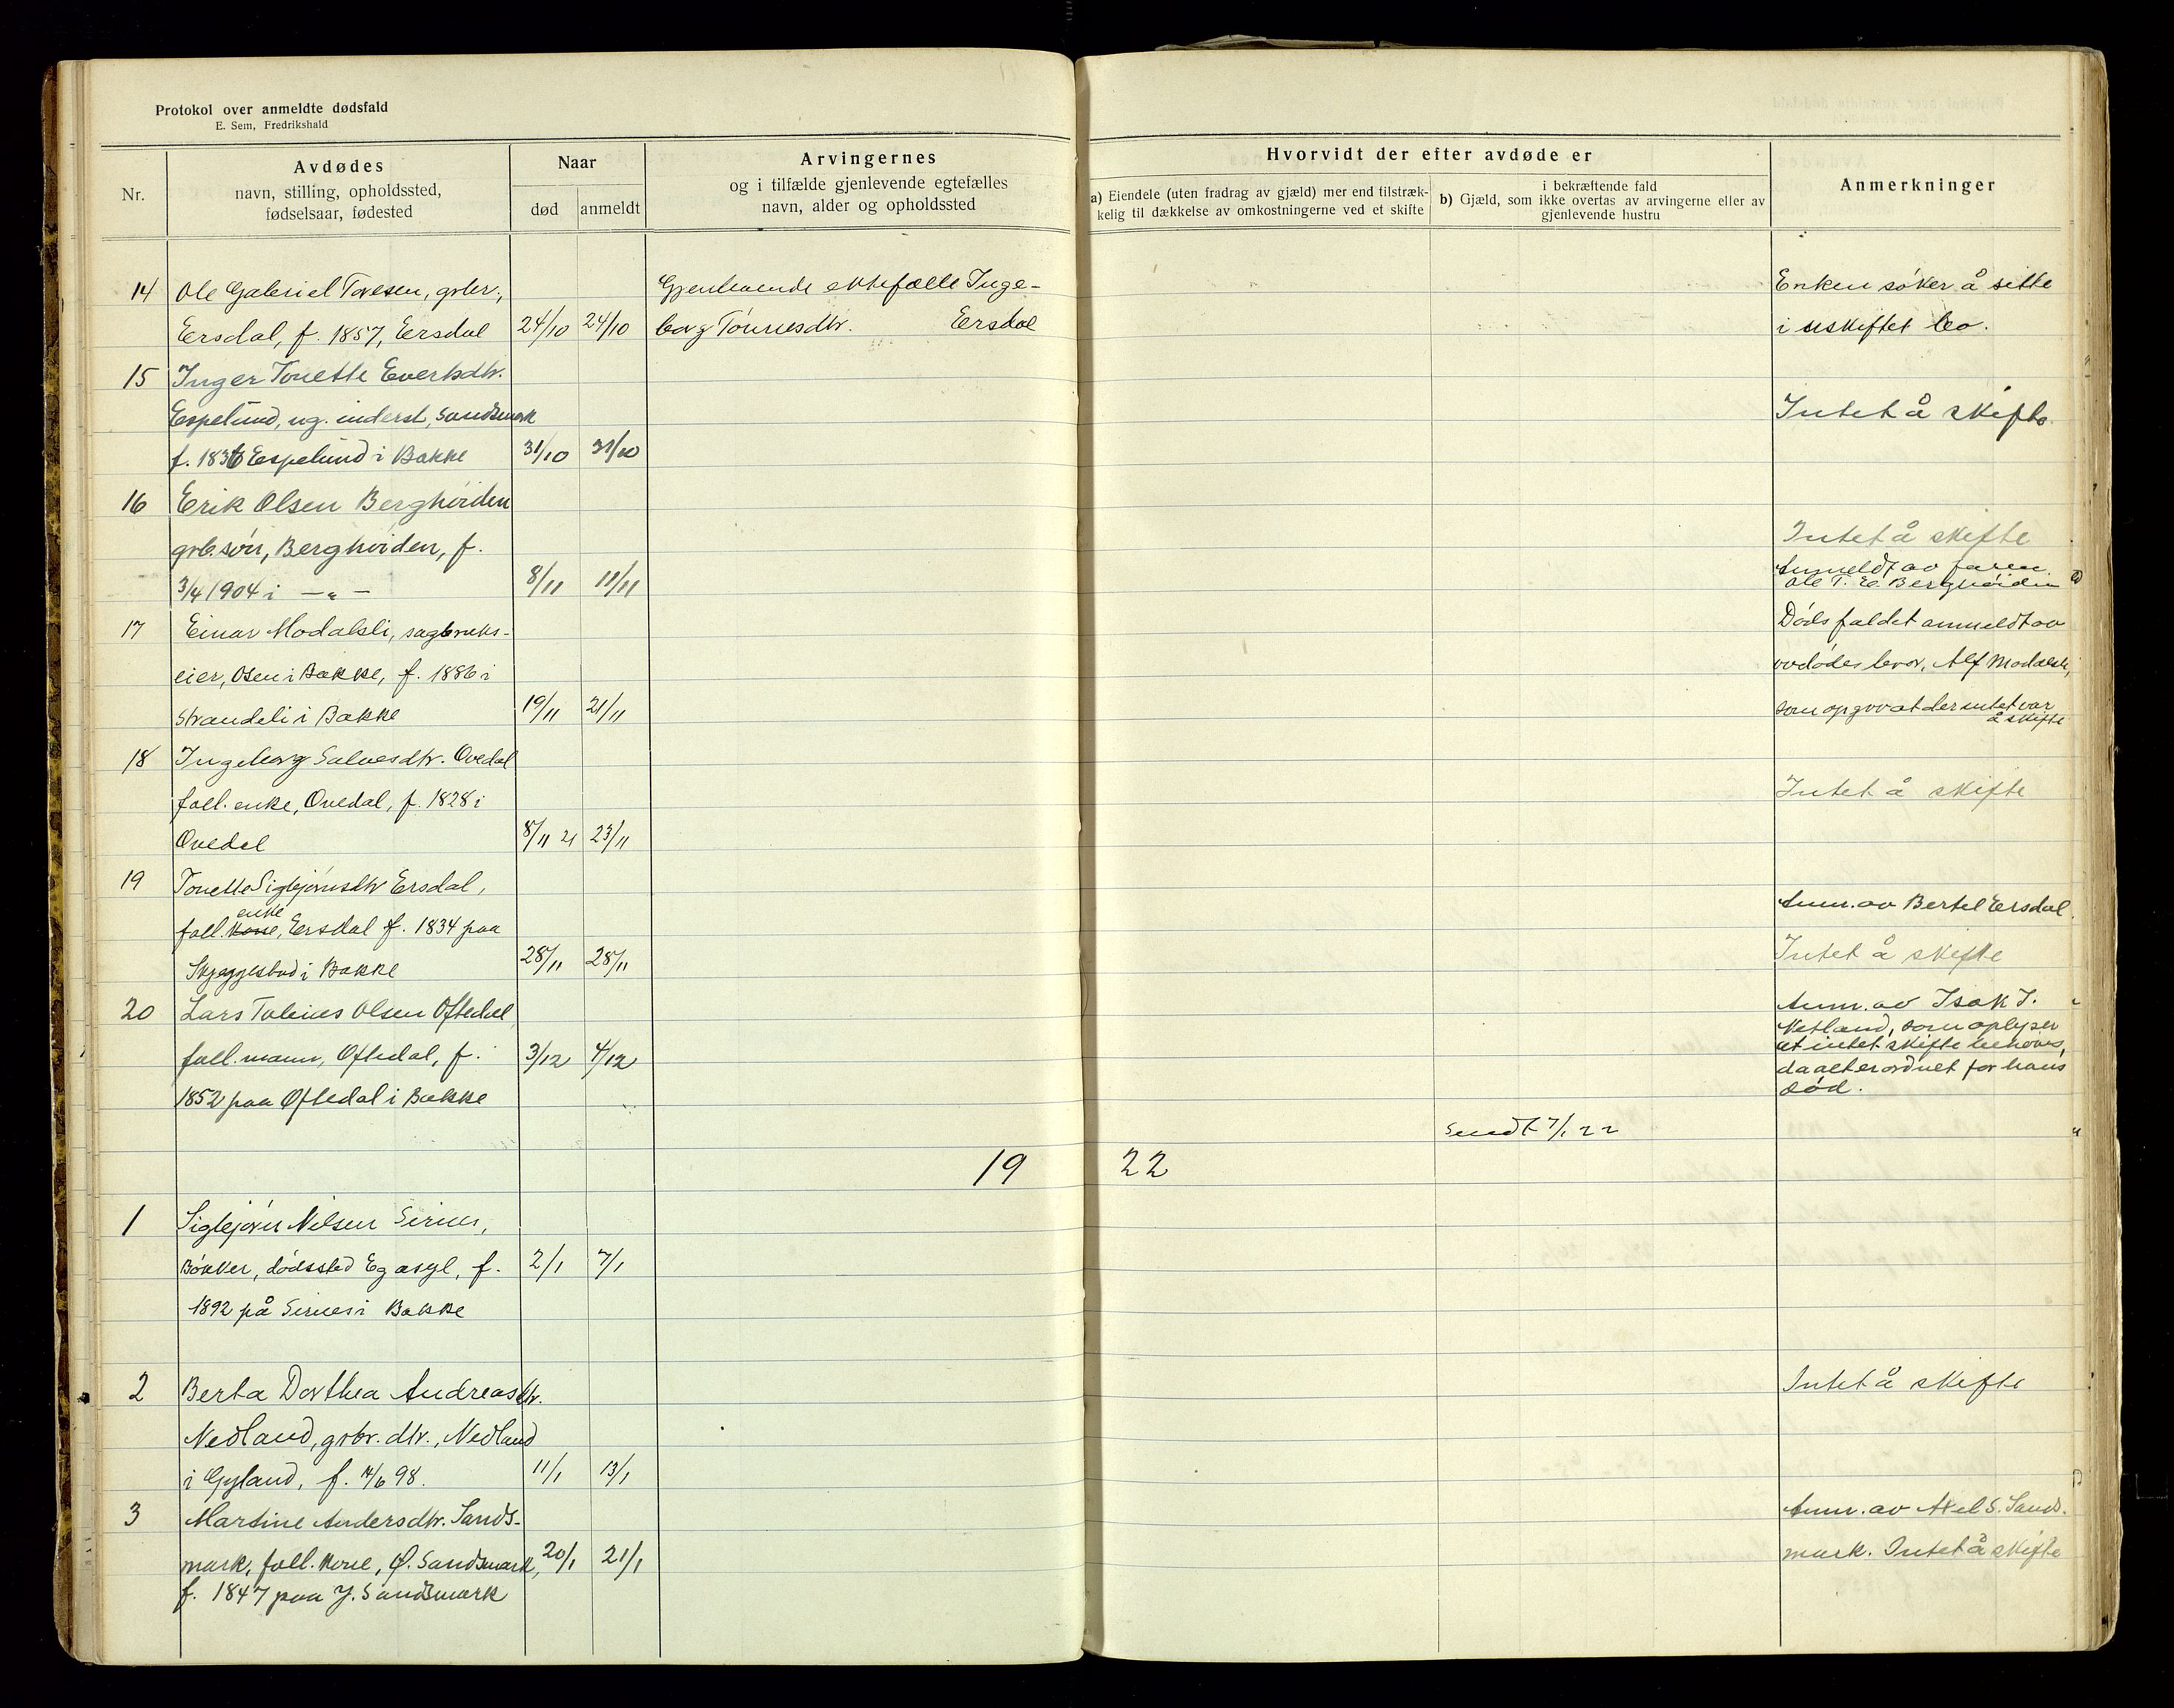 Protokol over anmeldte dødsfald
E. Sem, Fredrikshald
Nr.
Avdødes
navn, stilling, opholdssted,
fødselsaar, fødested
Naar
død
anmeldt
Arvingernes
og i tilfælde gjenlevende egtefælles
navn, alder og opholdssted
Hvorvidt der efter avdøde er
a) Eiendele (uten fradrag av gjæld) mer end tilstræk-
kelig til dækkelse av omkostningerne ved et skifte
i bekræftende fald
b) Gjæld, som ikke overtas av arvingerne eller av
gjenlevende hustru
Anmerkninger
14 Ole Gabriel Toresen, grbr., Gjenlevende ektefælle Inge- Enken søker å sitte
Eersdal, f. 1857, Eersdal 24/10 24/10 borg Tønnesdtr. Eersdal i uskiftet bo.
15 Inger Tonette Evertsdtr.
Espelund, ug. inderst, Sandsmark Intet å skifte.
f. 1836 Espelund i Bakke 31/10 31/10
16 Erik Olsen Berghøiden
grb. søn, Berghøiden, f. Intet å skifte
3/4 1904 i —„— 8/11 11/11 Anmeldt av faren
Ole T. E. Berghøiden
17 Einar Modalsli, sagbruks- Dødsfaldet anmeldt av
eier, Osen i Bakke, f. 1886 i avdødes bror, Alf Modalsli,
Strandeli i Bakke 19/11 21/11 som opgav at der intet var
å skifte
18 Ingeborg Salvesdtr. Ovedal
foll. enke, Ovedal, f. 1828 i Intet å skifte
Ovedal 8/11 21 23/11
19 Tonette Sigbjørnsdtr Ersdal,
enke Anm. av Bertel Eersdal.
foll. kone, Eersdal f. 1834 paa
Skjeggestad i Bakke 28/11 28/11 Intet å skifte
20 Lars Tobias Olsen Oftedal Anm. av Isak I.
Netland, som oplyser
foll. mann, Oftedal, f. 3/12 4/12 at intet skifte behøves,
da alt er ordnet før hans
1852 paa Oftedal i Bakke død.
Sendt 7/1 22
19 22
1 Sigbjørn Nilsen Sirnes,
Bøkker, dødssted Eg asyl, f. 2/1 7/1
1892 på Sirnes i Bakke
2 Berta Dorthea Andreasdtr. Intet å skifte
Nedland, grbr. dtr., Nedland
i Gyland, f. /6 98. 11/1 13/1
3 Martine Andersdtr. Sands- Anm. av Axel S. Sands-
mark, foll. kone, Ø. Sandsmark, 20/1 21/1 mark. Intet å skifte
f. 1847 paa Y. Sandsmark